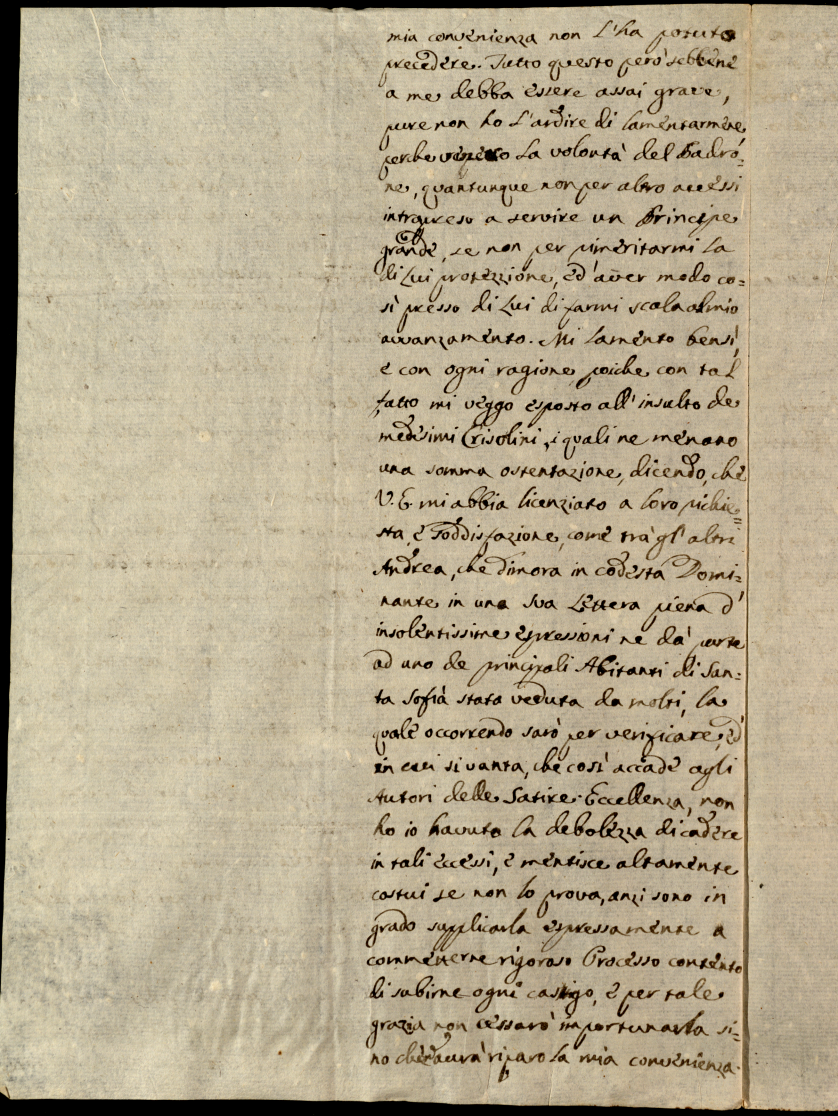 mia convenienza non l'ha potuto
precedere. Tutto questo però sebbene
a me debba essere assai grave,
pure non ho l'ardire di lamentarmene,
perche la volontà del Padro=
ne, quantunque non per altro avessi
intrapreso a servire un Principe
grande, se non per rimeritarmi la
di Lui protezzione, ed' aver modo co=
sì presso di Lui di farmi scala al mio
avvanzamento. Mi lamento bensì,
e con ogni ragione, poiche con tal
fatto mi veggo esposto all' insulto de
medesimi Crisolini, i quali ne menano
una somma ostentazione, dicendo, che
V. E. mi abbia licenziato a loro richie=
sta, e soddisfazione, come trà gl' altri
Andrea, che dimora in codesta Domi=
nante in una sua Lettera piena d'
insolentissime espressioni ne dà parte
ad uno de principali Abitanti di San=
ta Sofia stata veduta da molti, la
quale occorrendo sarò per verificare, ed
in cui si vanta, che così accade agli
Autori delle Satire. Eccellenza, non
ho io havuta la debolezza di cadere
in tali eccessi, e mentisce altamente
costui se non lo prova, anzi sono in
grado supplicarla espressamente a
commetterne rigoroso Processo contento
di subirne ogni castigo, e per tale
grazia non cessarò importunarla si=
no che avrà riparo la mia convenienza.